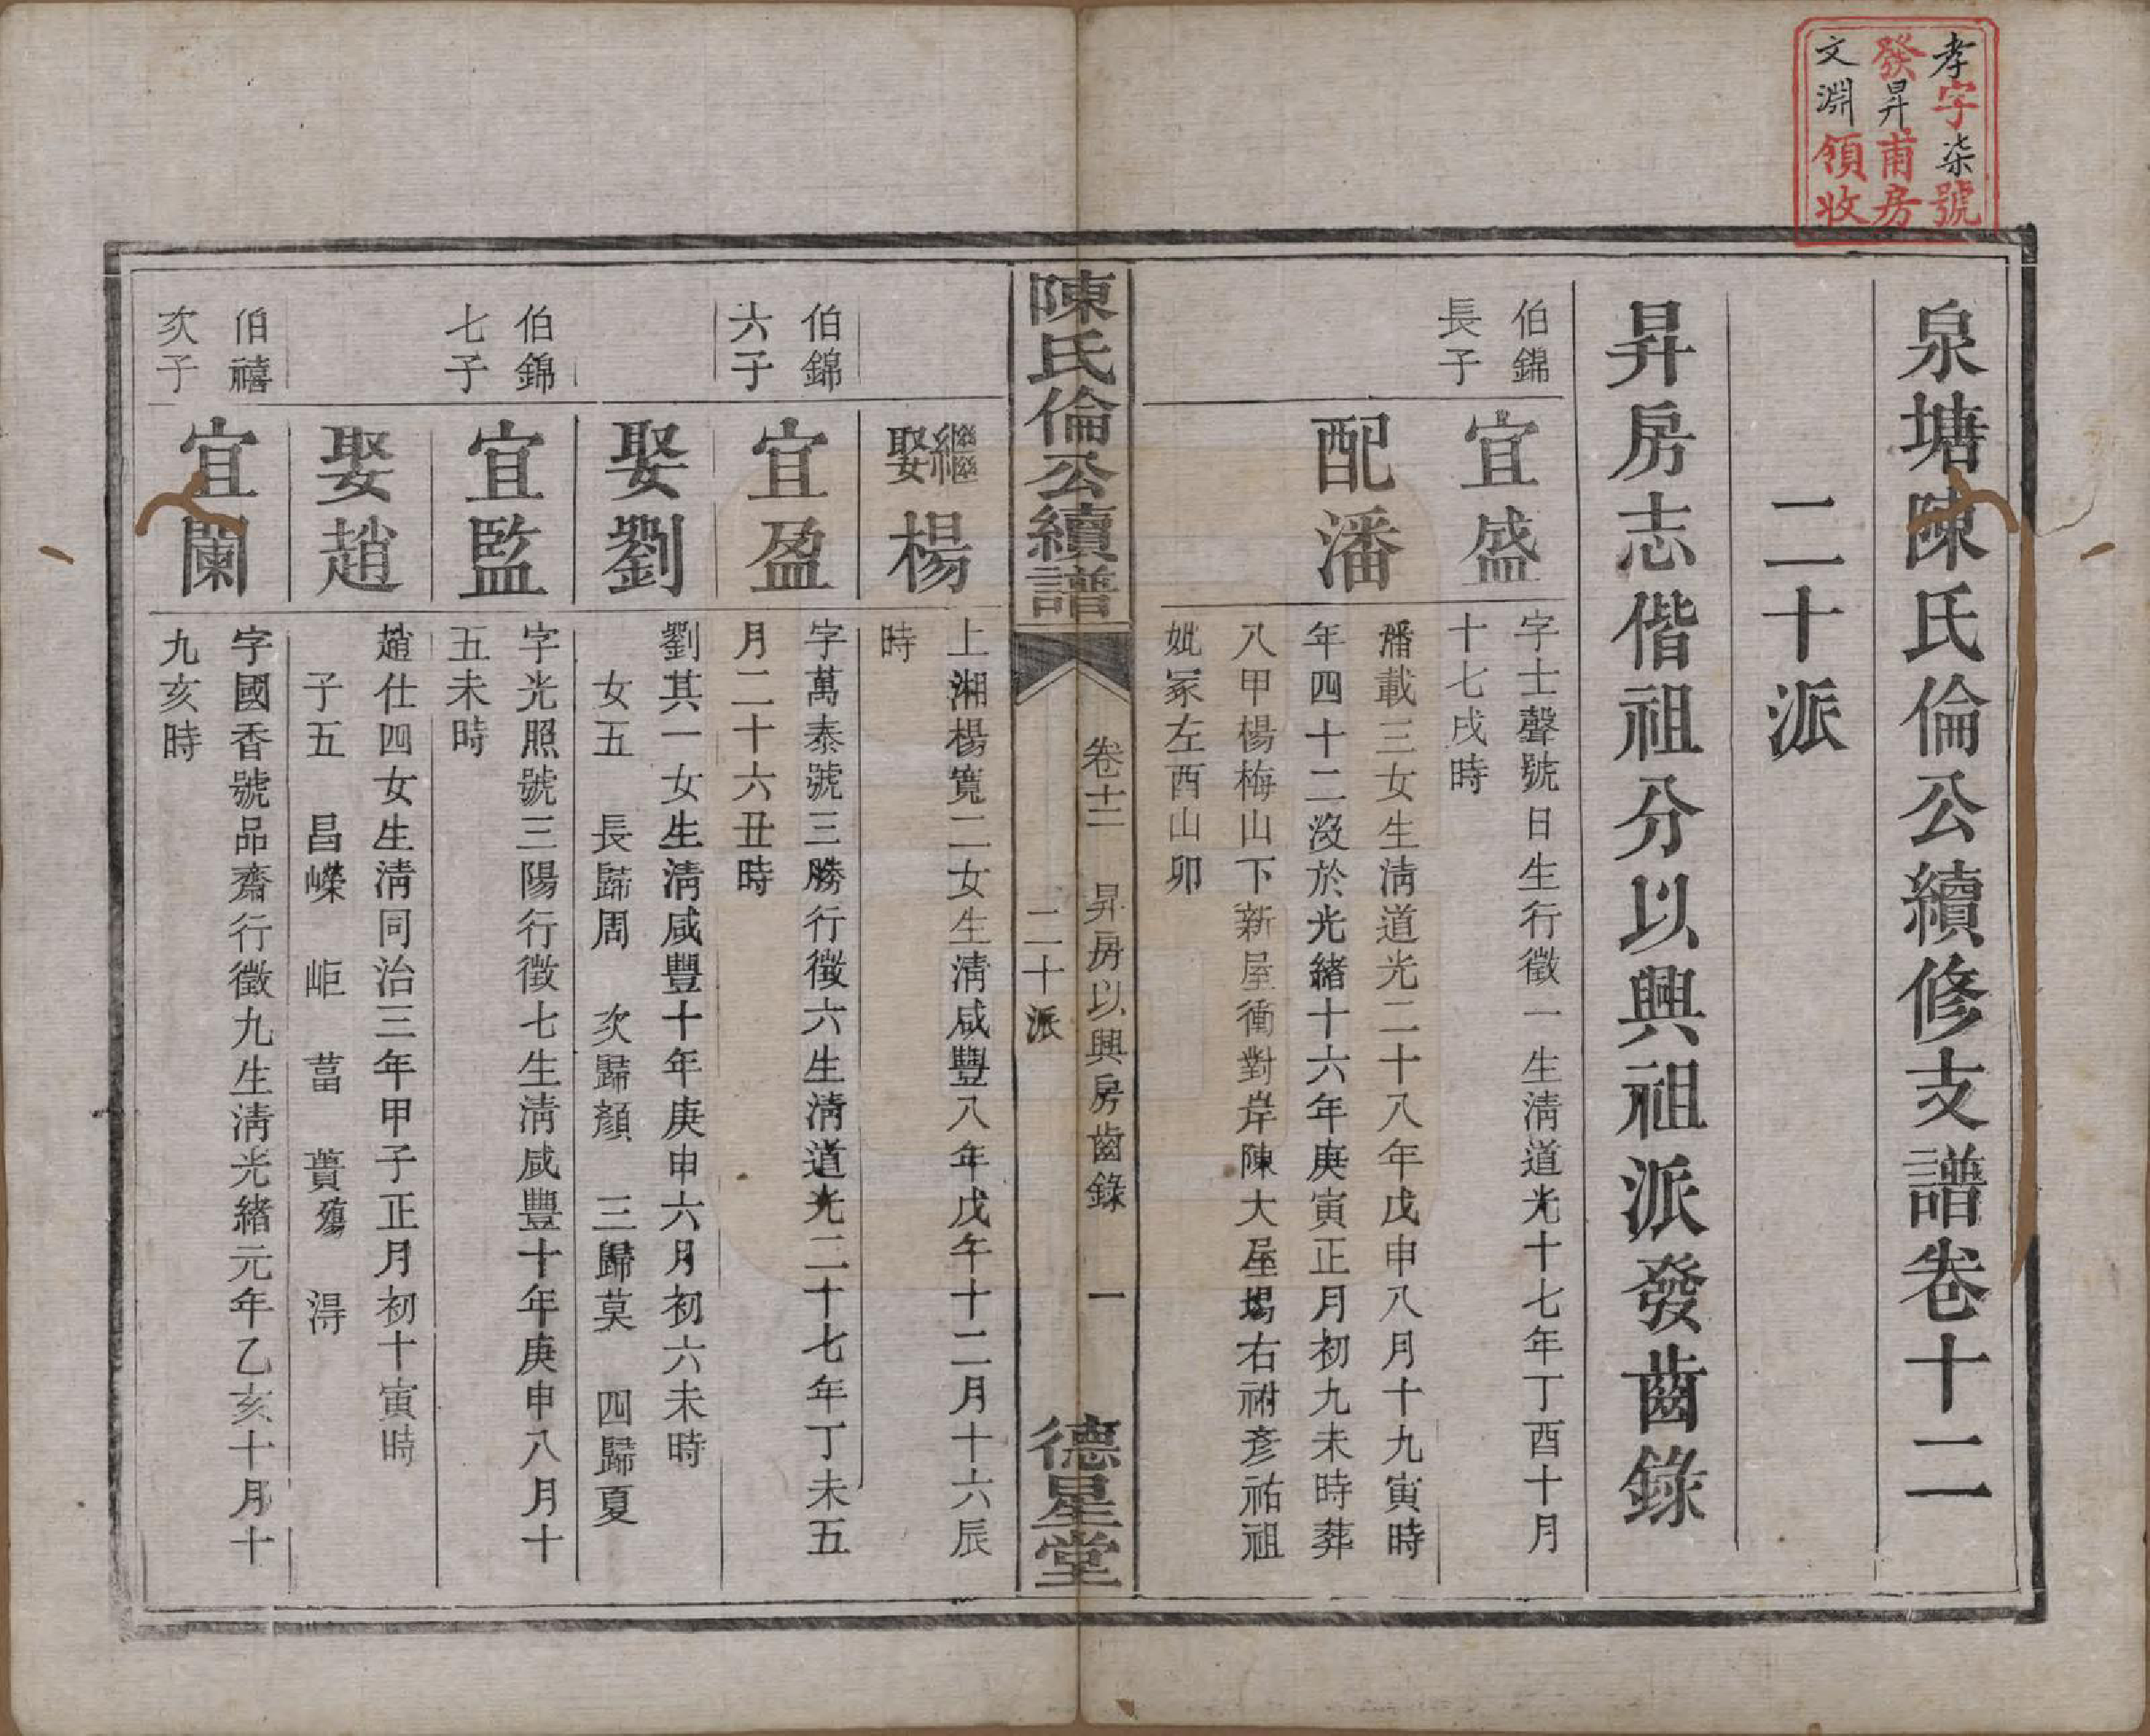 孝字柒號
發昇甫房
文淵領收
泉塘陳氏倫公續修支譜卷十二
二十派
昇房志偕祖分以興祖派發齒錄
伯錦
長子
宜盛
字士聲號日生行徵一生淸道光十七年丁酉十月
十七戌時
配潘
潘載三女生淸道光二十八年戊申八月十九寅時
年四十二沒於光緒十六年庚寅正月初九未時葬
八甲楊梅山下新屋衝對岸陳大屋場右祔彥祐祖
妣冢左酉山卯
陳氏倫公續譜
卷十二
昇房以興房齒錄
一
二十派
德星堂
繼娶楊
上湘楊寬二女生淸咸豐八年戊午十二月十六辰
時
伯錦
六子
宜盈
字萬泰號三勝行徵六生淸道光二十七年丁未五
月二十六丑時
娶劉
劉其一女生淸咸豐十年庚申六月初六未時
女五 長歸周 次歸顏 三歸莫 四歸夏
伯錦
七子
宜監
字光照號三陽行徵七生淸咸豐十年庚申八月十
五未時
娶趙
趙仕四女生淸同治三年甲子正月初十寅時
子五 昌嶸 岠 葍 蕒殤 淂
伯禧
次子
宜闌
字國香號品齋行徵九生淸光緒元年乙亥十月十
九亥時